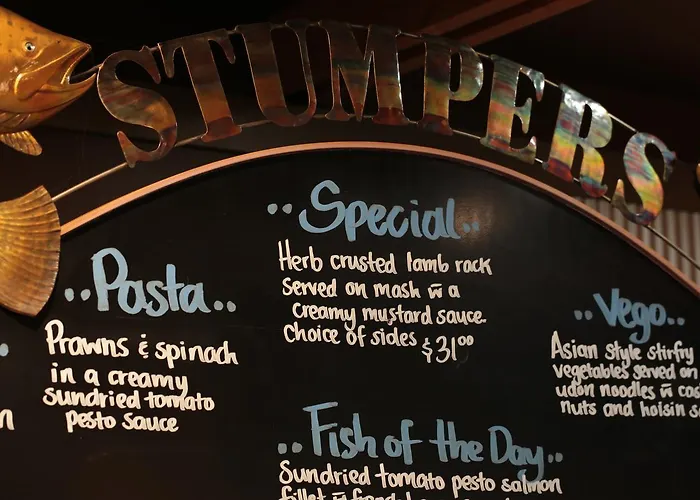 STUMPERS
..Special..
Herb crusted lamb rack
Served on mash w̄ a
creamy mustard sauce.
Choice of sides $31⁰⁰
..Pasta..
Prawns & spinach
in a creamy
sundried tomato
pesto sauce
..Vego..
Asian style stirfry
vegetables served on
udon noodles w̄
nuts and hoisin
..Fish of the Day..
Sundried tomato pesto salmon
fillet w̄